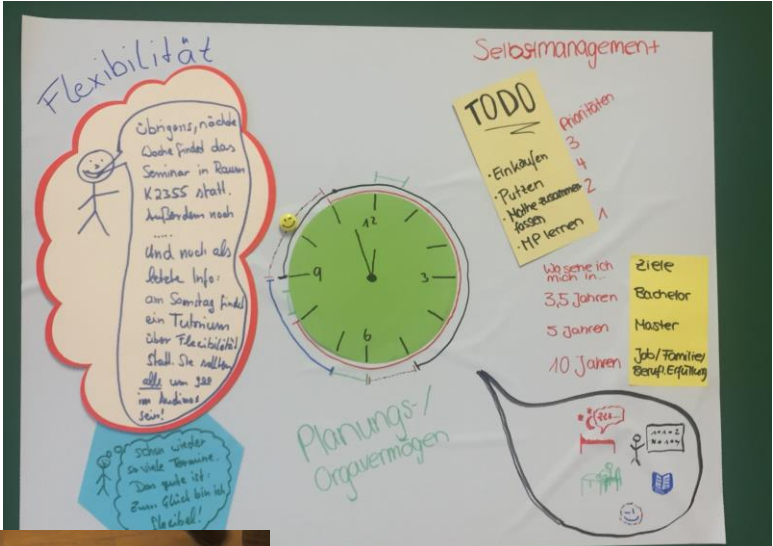 Flexibilität
Übrigens, nächste
Woche findet das
Seminar in Raum
K2355 statt.
Außerdem noch
.....
Und noch als
letzte Info:
am Samstag findet
ein Tutorium
über Flexibilität
statt. Sie sollten
alle um
im Audimax
sein!
schon wieder
so viele Termine.
Das gute ist:
Zum Glück bin ich
flexibel!
12
3
6
9
Planungs-/
Orgavermögen
Selbstmanagement
TODO
Prioritäten
· Einkaufen 3
· Putzen 4
· Mathe zusammen 2
fassen
· MP lernen 1
Wo sehe ich
mich in...
Ziele
3,5 Jahren Bachelor
5 Jahren Master
10 Jahren Job/Familie/
Berufl. Erfüllung